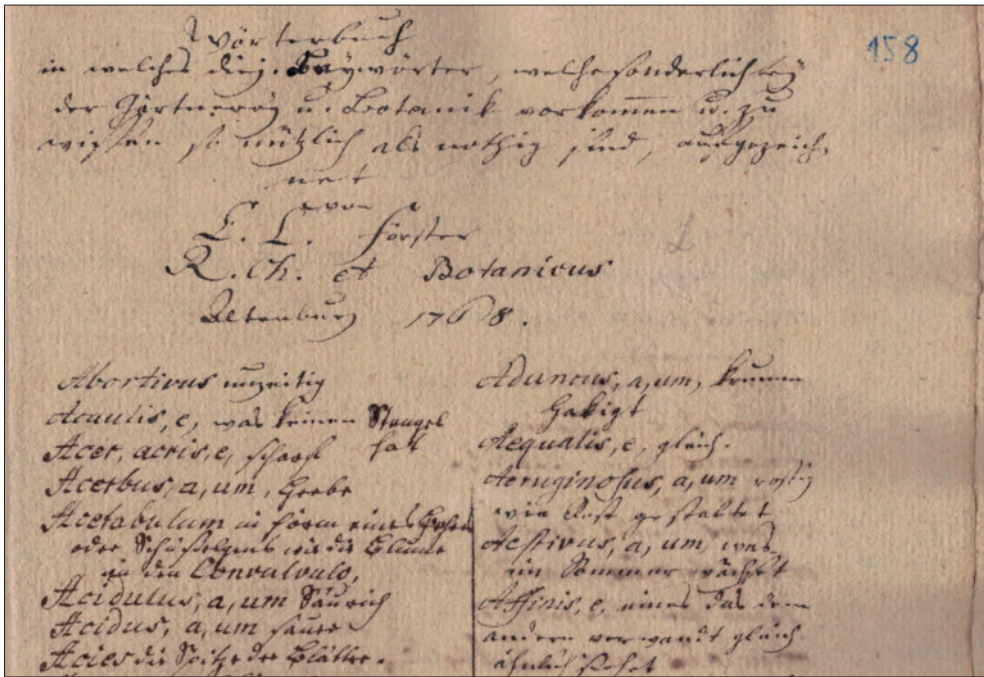 158
Wörterbuch
in welches diej. Beÿwörter, welche sonderlich beÿ
der Gärtnereÿ u. Botanik vorkommen u. zu
wissen so nützlich als nothig sind, aufgezeich
net
von
C. L. Förster
R. Ch. et Botanicus
Altenburg 1768.
Abortivus unzeitig
Acaulis, e, was keinen Stengel
hat
Acer, acris, e, scharf
Acerbus, a, um, herbe
Acetabulum in Form eines
oder Schüßelgens wie die Blume
an den Convulvulo,
Acidulus, a, um Säurich
Acidus, a, um sauer
Acies die Spitze der Blätter.
Aduncus, a, um, krumm
hakigt
Aequalis, e, gleich.
Aeruginosus, a, um rostig
wie Rost gestaltet
Aestivus, a, um, was
im Sommer wächset
Affinis, e, eines das dem
andern verwandt gleich
ähnlich siehet